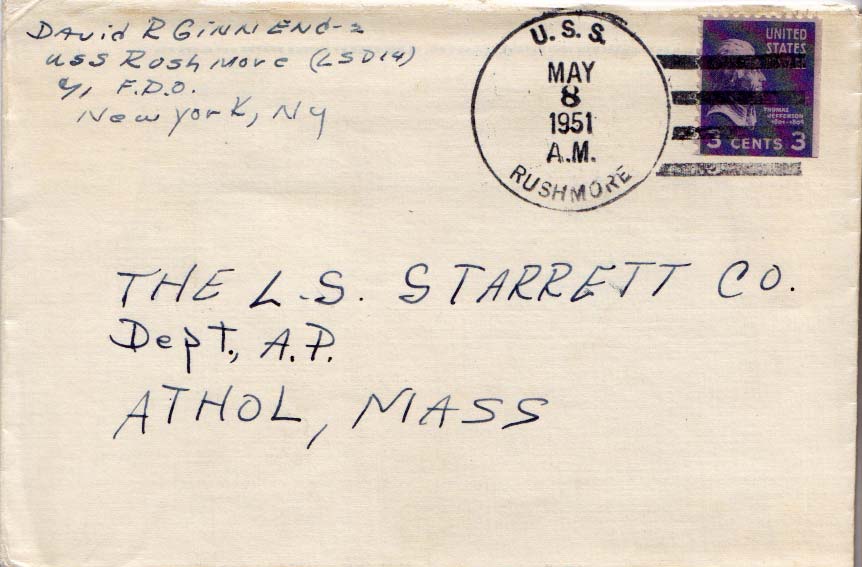 David R Ginn END-2
USS Rushmore (LSD14)
c/o F.P.O.
New York, NY
U.S.S.
MAY
8
1951
A.M.
RUSHMORE
UNITED
STATES
THOMAS
JEFFERSON
1801-1809
3 CENTS 3
THE L.S. STARRETT CO.
Dept., A.P.
ATHOL, MASS